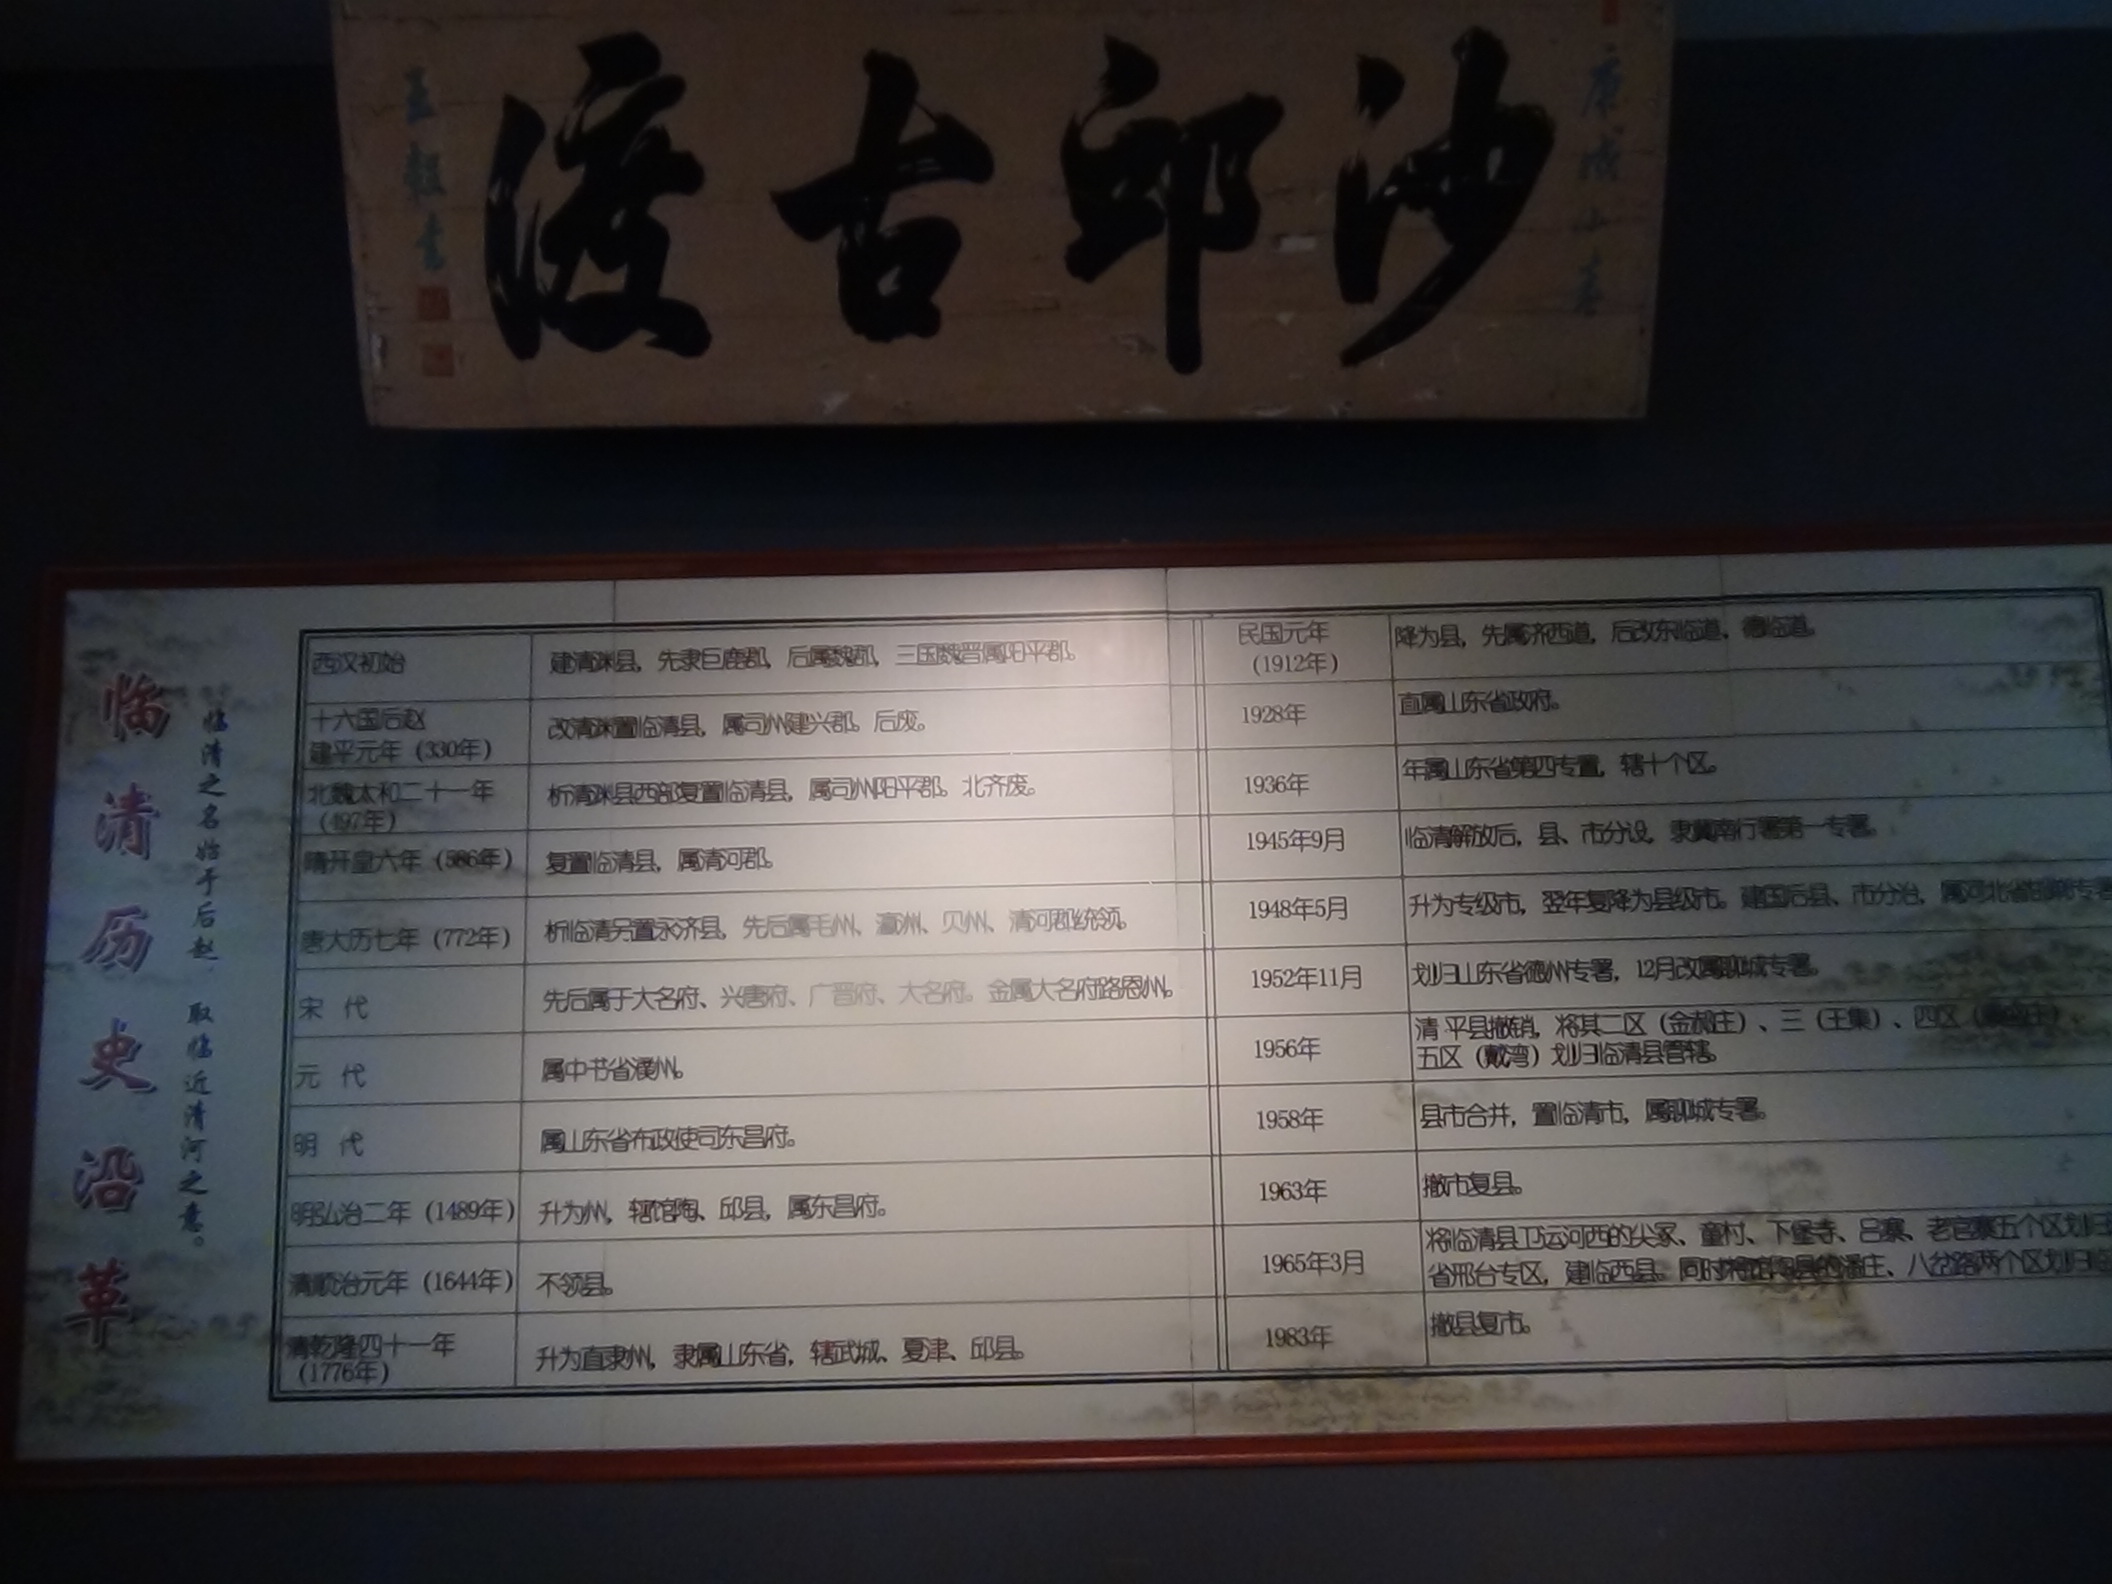 沙邱古渡
庚戌小春
王毅书
临清历史沿革
临清之名始于后赵，取临近清河之意。
西汉初始 建清渊县，先隶巨鹿郡，后属魏郡，三国魏晋属阳平郡。
十六国后赵
建平元年（330年） 改清渊置临清县，属司州建兴郡。后废。
北魏太和二十一年
（497年） 析清渊县西部复置临清县，属司州阳平郡。北齐废。
隋开皇六年（586年） 复置临清县，属清河郡。
唐大历七年（772年） 析临清另置永济县，先后属毛州、瀛州、贝州、清河郡统领。
宋 代 先后属于大名府、兴唐府、广晋府、大名府。金属大名府路恩州。
元 代 属中书省濮州。
明 代 属山东省布政使司东昌府。
明弘治二年（1489年） 升为州，辖馆陶、邱县，属东昌府。
清顺治元年（1644年） 不领县。
清乾隆四十一年
（1776年） 升为直隶州，隶属山东省，辖武城、夏津、邱县。
民国元年
（1912年） 降为县，先属济西道，后改东临道、德临道。
1928年 直属山东省政府。
1936年 年属山东省第四专署，辖十个区。
1945年9月 临清解放后，县、市分设，隶冀南行署第一专署。
1948年5月 升为专级市，翌年复降为县级市。建国后县、市分治，属河北省邯郸专署
1952年11月 划归山东省德州专署，12月改属聊城专署。
1956年 清平县撤销，将其二区（金郝庄）、三（王集）、四区
五区（戴湾）划归临清县管辖。
1958年 县市合并，置临清市，属聊城专署。
1963年 撤市复县。
1965年3月 将临清县卫运河西的尖冢、童村、下堡寺、吕寨、老官寨五个区划归
省邢台专区，建临西县。同时将馆陶县的潘庄、八岔路两个区划归临
1983年 撤县复市。